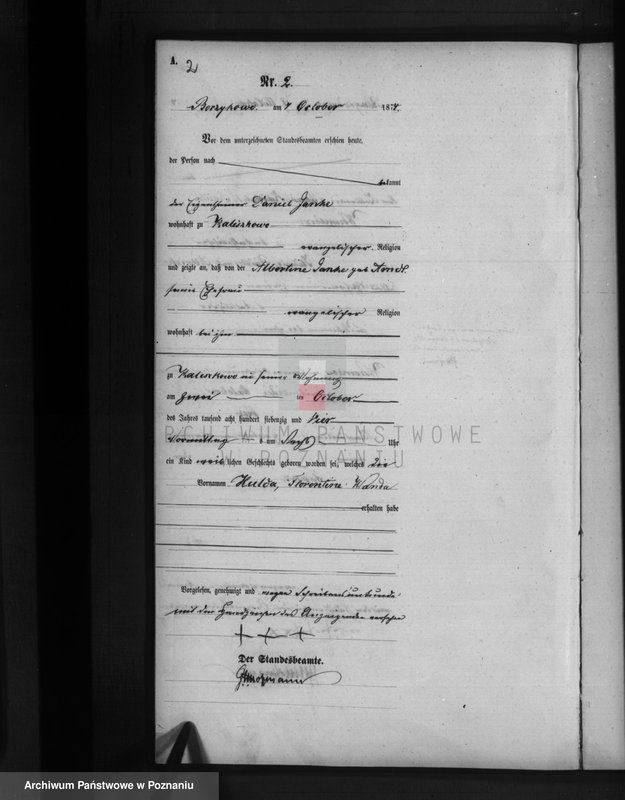 A.
2
Nr. 2.
am 7 October 1874.
Vor dem unterzeichneten Standesbeamten erschien heute,
der Person nach
bekannt
der Eigenthümer Daniel Janke
wohnhaft zu Kaliszkowo
evangelischer Religion
und zeigte an, daß von der Albertine Janke geb Arndt
seine Ehefrau
evangelischer Religion
wohnhaft bei ihm
zu Kaliszkowo in seiner Wohnung
am zwei ten October
des Jahres tausend acht hundert siebenzig und vier
Vormittag s um Uhr
ein Kind weiblichen Geschlechts geboren worden sei, welches die
Vornamen Hulda, Florentine Wanda
erhalten habe
Vorgelesen, genehmigt und wegen Schreibensunkunde
mit dem Handzeichen des Anzeigenden versehen
+ + +
Der Standesbeamte.
ARCHIWUM PAŃSTWOWE
W POZNANIU
Archiwum Państwowe w Poznaniu